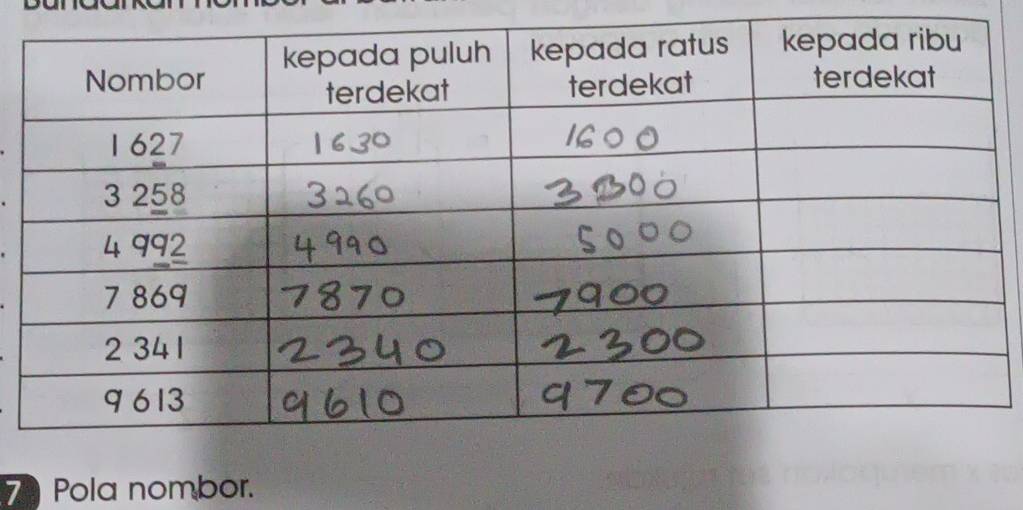 Nombor kepada puluh terdekat kepada ratus terdekat kepada ribu terdekat
1 627 1630 1600
3 258 3260 3300
4 992 4990 5000
7 869 7870 7900
2 341 2340 2300
9 613 9610 9700
7 Pola nombor.